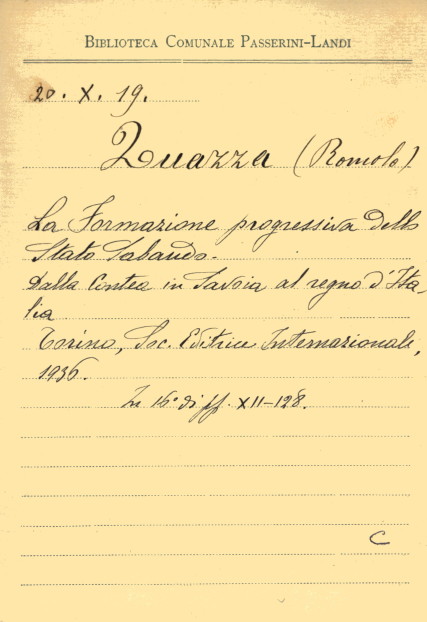 BIBLIOTECA COMUNALE PASSERINI-LANDI
20. X. 19.
Quazza (Romolo)
La Formazione progressiva dello
Stato Sabaudo.
Dalla Contea in Savoia al regno d'Ita-
lia
Torino, Soc. Editrice Internazionale,
1936.
In 16° di ff. XII-128.
C